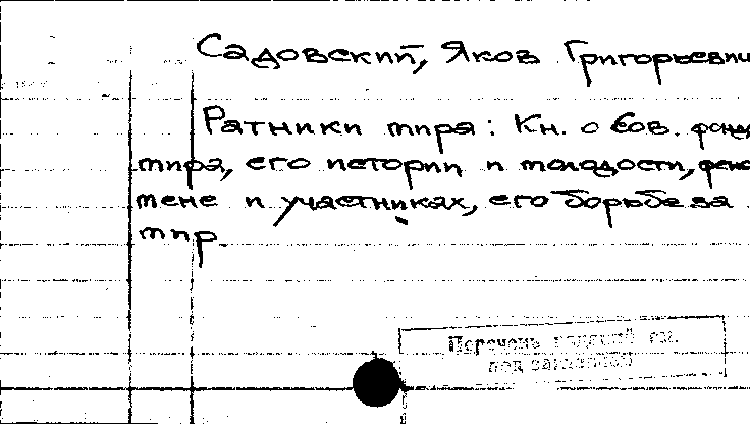 Садовский, Яков Григорьевич
Ратники мира: Кн. о Сов. фонд
мира, его истории и молодости, фено
мене и участниках, его борьбе за
мир.
Перечень изданий см.
под заглавием